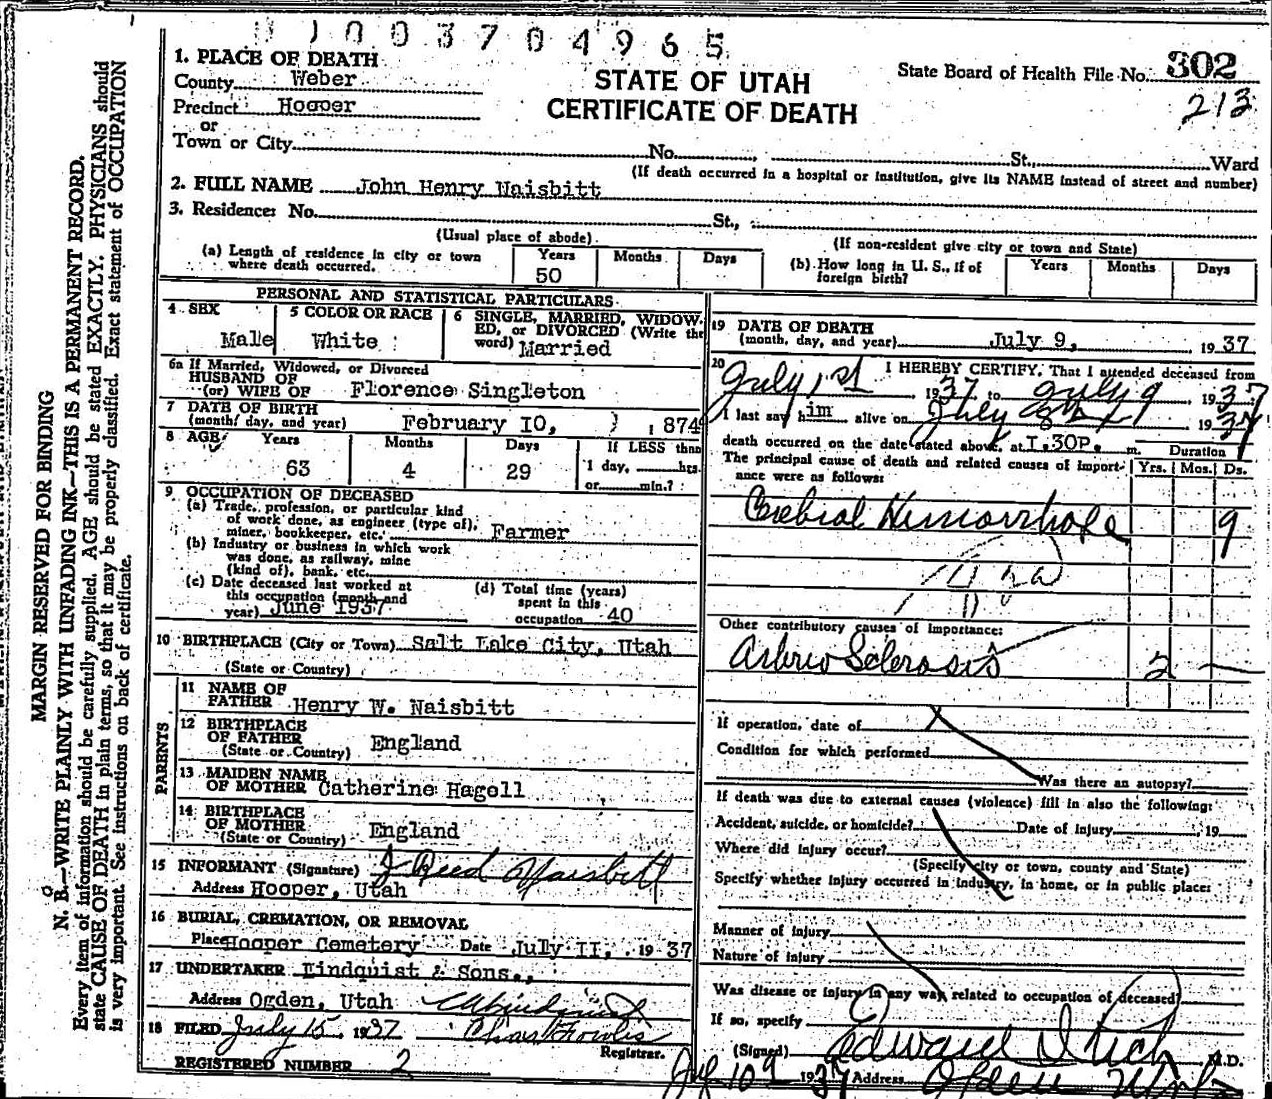 0 1 0 0 3 7 0 4 9 6 5
1. PLACE OF DEATH
County Weber
Precinct Hooper
or
Town or City No. St., Ward
STATE OF UTAH
CERTIFICATE OF DEATH
State Board of Health File No. 302
213
(If death occurred in a hospital or institution, give its NAME instead of street and number)
2. FULL NAME John Henry Naisbitt
3. Residence: No. St.,
(Usual place of abode) (If non-resident give city or town and State)
(a) Length of residence in city or town where death occurred. Years 50 Months Days
(b) How long in U. S., if of foreign birth? Years Months Days
PERSONAL AND STATISTICAL PARTICULARS
4 SEX Male
5 COLOR OR RACE White
6 SINGLE, MARRIED, WIDOWED, or DIVORCED (Write the word) Married
6a If Married, Widowed, or Divorced
HUSBAND OF
(or) WIFE OF Florence Singleton
7 DATE OF BIRTH
(month, day, and year) February 10, 1874
8 AGE Years Months Days If LESS than
63 4 29 1 day, hrs.
or min.?
9 OCCUPATION OF DECEASED
(a) Trade, profession, or particular kind
of work done, as engineer (type of),
miner, bookkeeper, etc. Farmer
(b) Industry or business in which work
was done, as railway, mine
(kind of), bank, etc.
(c) Date deceased last worked at
this occupation (month and
year) June 1937
(d) Total time (years)
spent in this
occupation 40
10 BIRTHPLACE (City or Town) Salt Lake City, Utah
(State or Country)
PARENTS
11 NAME OF
FATHER Henry W. Naisbitt
12 BIRTHPLACE
OF FATHER England
(State or Country)
13 MAIDEN NAME
OF MOTHER Catherine Hagell
14 BIRTHPLACE
OF MOTHER England
(State or Country)
15 INFORMANT (Signature) J Reed Naisbitt
Address Hooper, Utah
16 BURIAL, CREMATION, OR REMOVAL
Place Hooper Cemetery Date July 11, 1937
17 UNDERTAKER Lindquist & Sons.,
Address Ogden, Utah
18 FILED July 15 1937
Registrar.
REGISTERED NUMBER 2
19 DATE OF DEATH
(month, day, and year) July 9, 1937
20 I HEREBY CERTIFY, That I attended deceased from
July 1st 1937 to July 9 1937
I last saw him alive on July 1937
death occurred on the date stated above, at 1.30P. m.
Duration
The principal cause of death and related causes of importance were as follows: Yrs. Mos. Ds.
Cerebral Hemorrhage 9
Other contributory causes of importance:
Arterio Sclerosis 2 —
If operation, date of
Condition for which performed
Was there an autopsy?
If death was due to external causes (violence) fill in also the following:
Accident, suicide, or homicide? Date of injury 19
Where did injury occur?
(Specify city or town, county and State)
Specify whether injury occurred in industry, in home, or in public place:
Manner of injury
Nature of injury
Was disease or injury in any way related to occupation of deceased
If so, specify
(Signed) Edward I Rich M.D.
1937 Address Ogden Utah
MARGIN RESERVED FOR BINDING
N. B.—WRITE PLAINLY WITH UNFADING INK—THIS IS A PERMANENT RECORD.
Every item of information should be carefully supplied. AGE should be stated EXACTLY. PHYSICIANS should
state CAUSE OF DEATH in plain terms, so that it may be properly classified. Exact statement of OCCUPATION
is very important. See instructions on back of certificate.